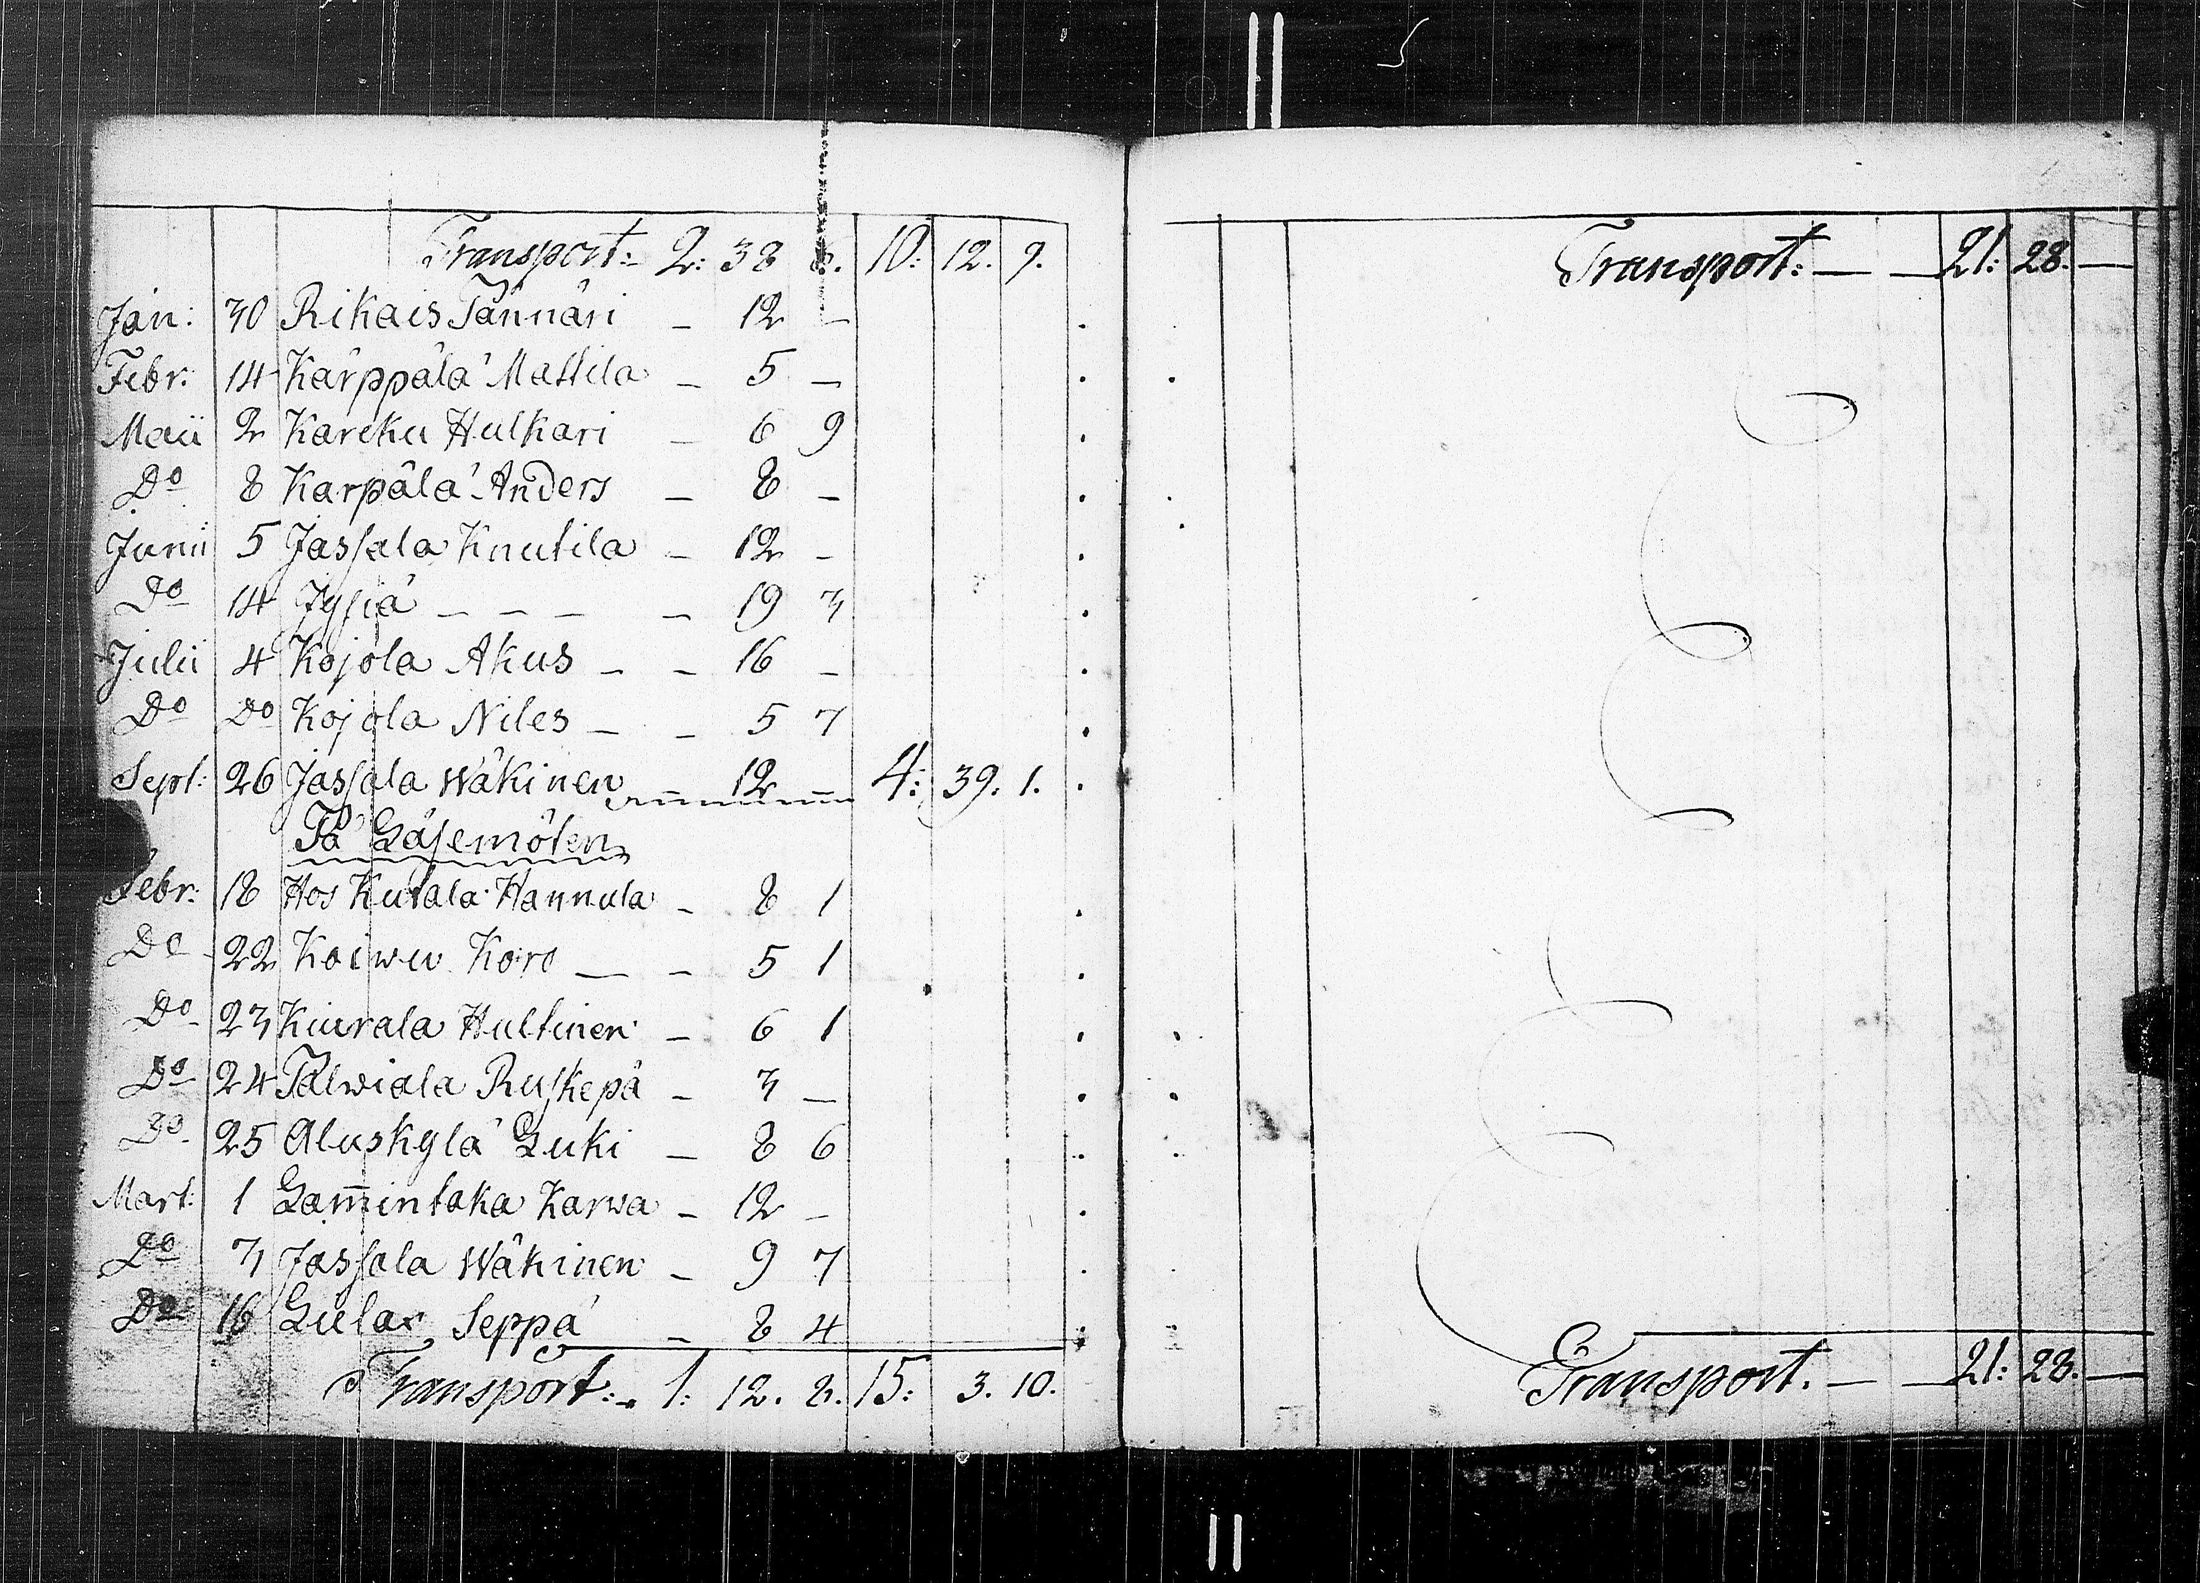 Transport: 2: 38 8. 10: 12. 9.
Jan: 30 Rikais Tännäri – 12 –
Febr: 14 Kärppälä Mattila – 5 –
Maii 2 Kareku Hulkari – 6 9
Do 8 Karpälä Anders – 8 –
Junii 5 Jassala Knutila – 12 –
Do 14 Jysiä – – – – 19 3
Julii 4 Kojola Akus – – 16 –
Do Do Kojola Niles – – 5 7
Sept: 26 Jassala Wäkinen 12 4: 39. 1.
På Läsemöten
Febr: 18 Hos Kutala Hannula – 8 1
Do 22 Koiwu Koro – – 5 1
Do 23 Kiurala Hultinen – 6 1
Do 24 Talwiala Ruskepä – 3 –
Do 25 Aluskylä Luki – 8 6
Mart: 1 Lam̅intaka Karwa – 12 –
Do 3 Jassala Wäkinen – 9 7
Do 16 Seppä – 8 4
Transport: 1: 12. 8. 15: 3. 10.
Transport: – – 21: 28. –
Transport. – – 21: 28. –